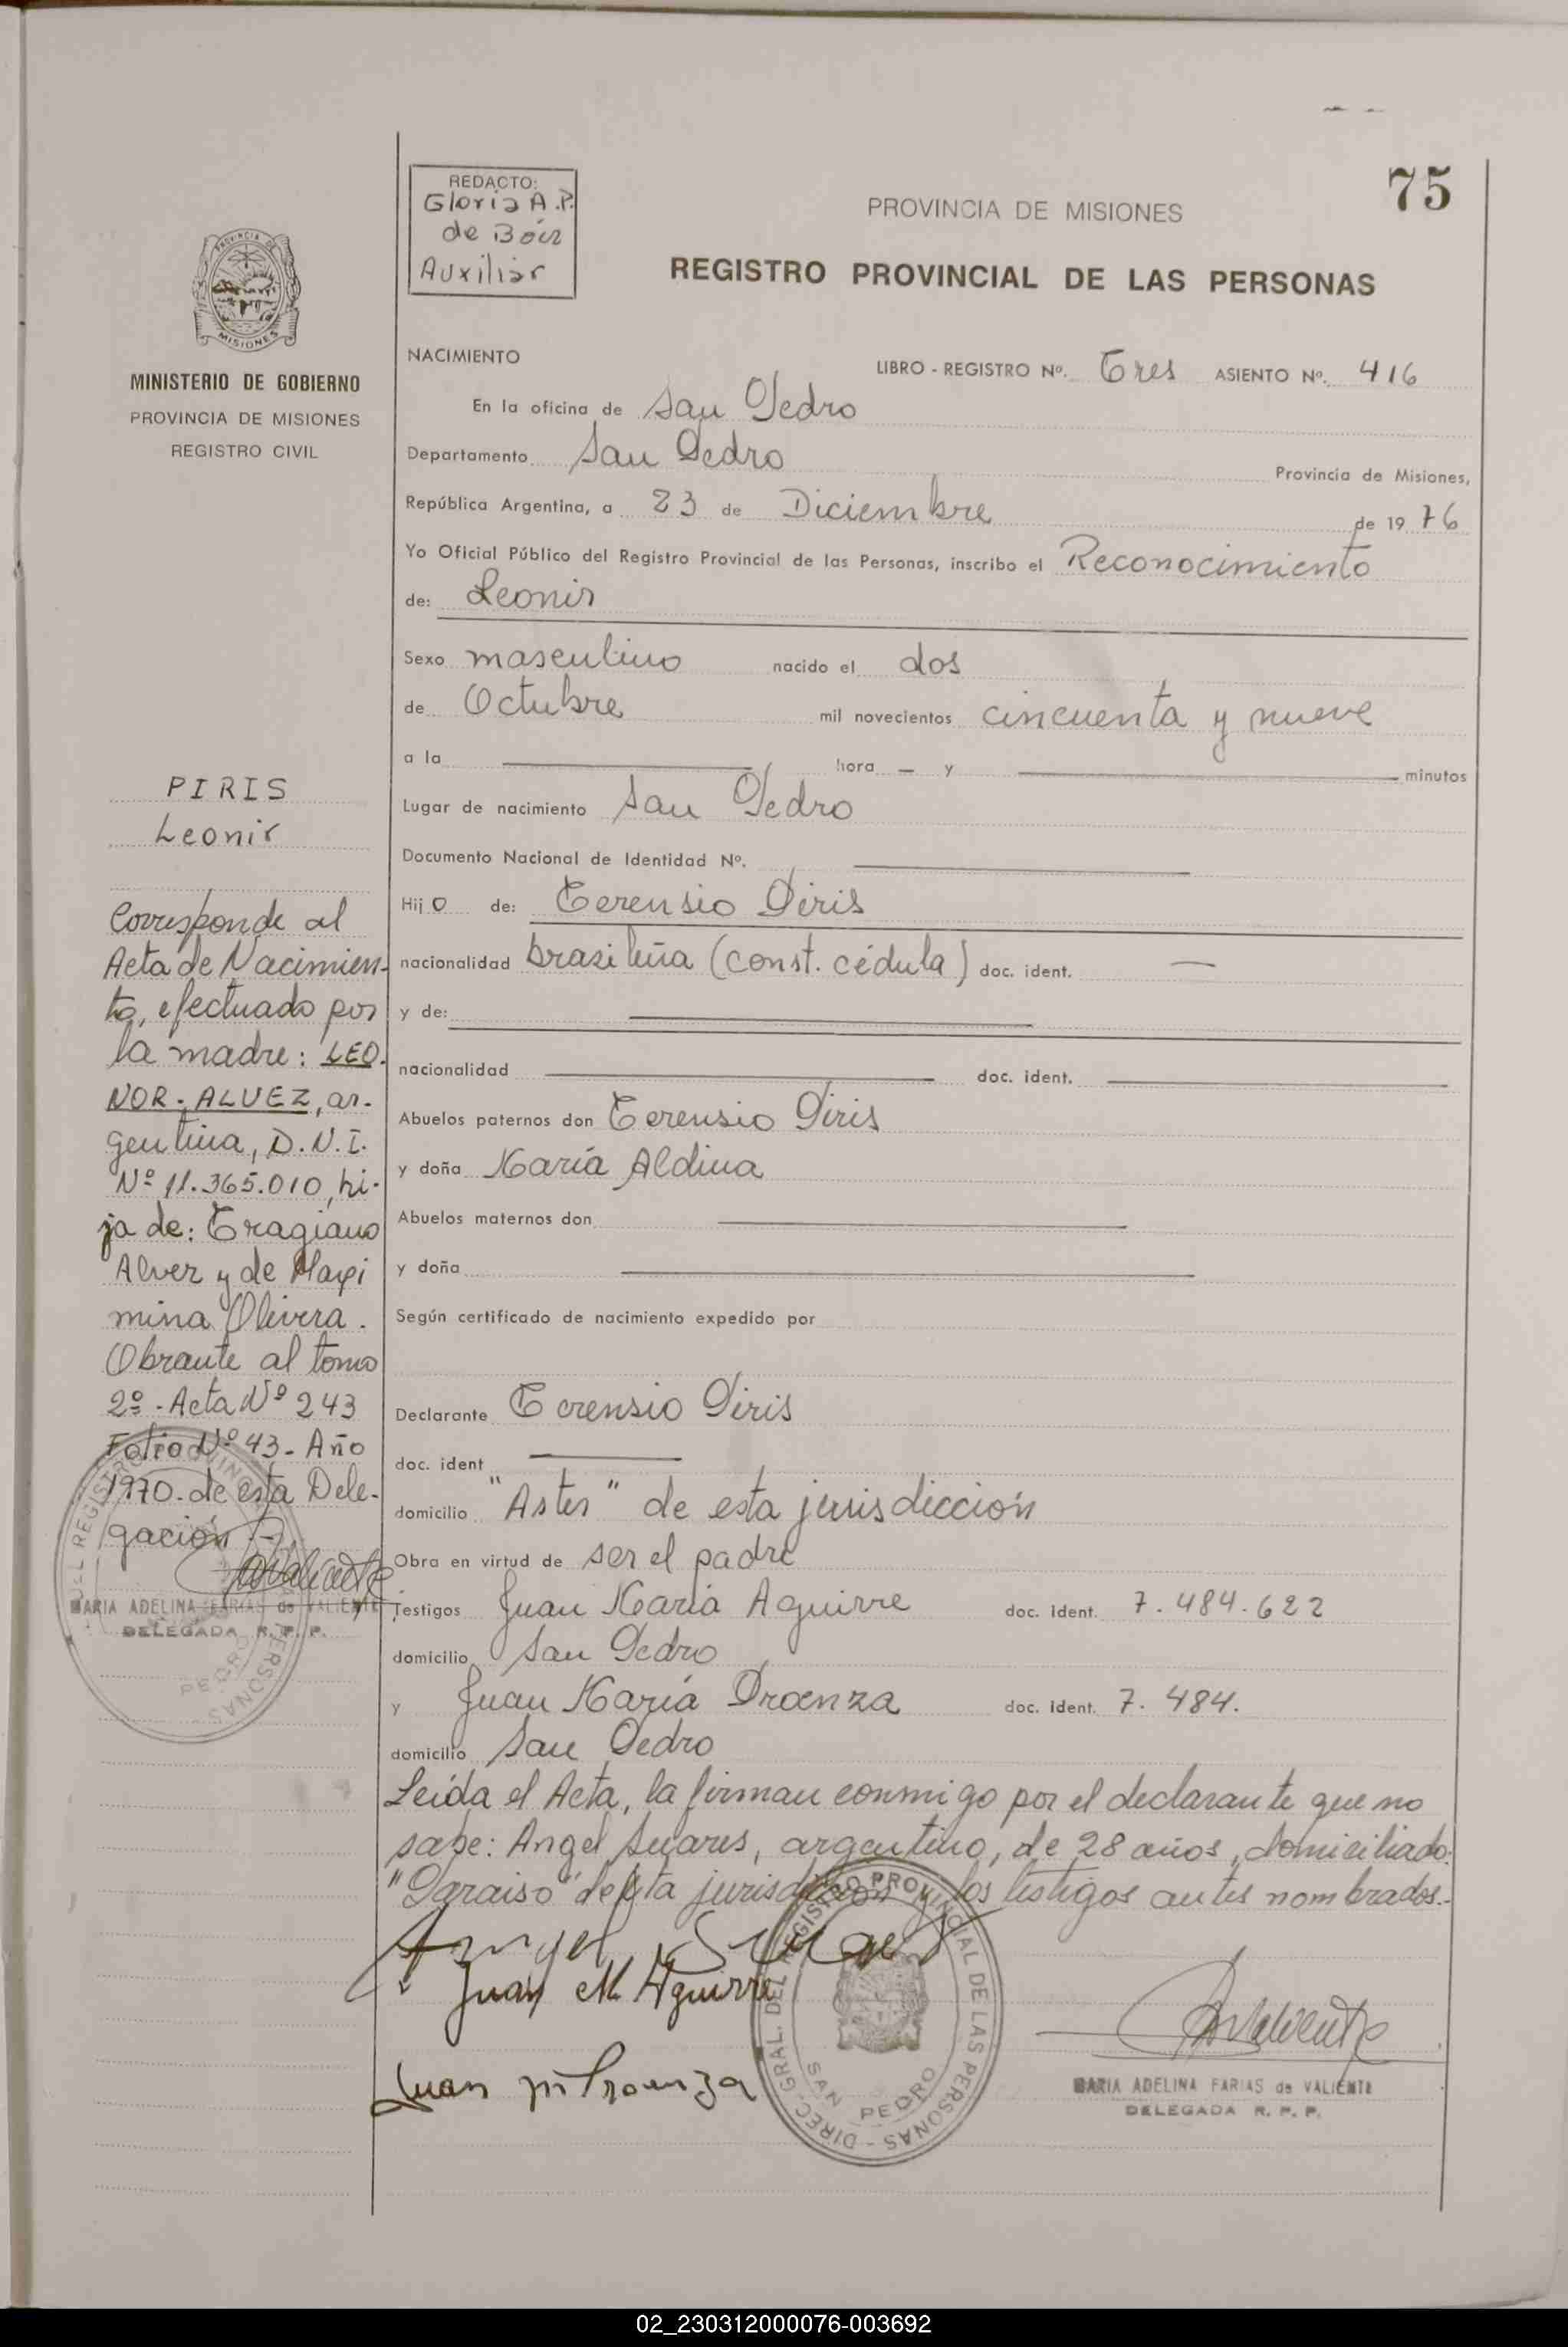 75
REDACTO:
Gloria A.P.
de Bóer
Auxiliar
PROVINCIA DE MISIONES
REGISTRO PROVINCIAL DE LAS PERSONAS
PROVINCIA DE
MISIONES
MINISTERIO DE GOBIERNO
PROVINCIA DE MISIONES
REGISTRO CIVIL
PIRIS
Leonir
Corresponde al
Acta de Nacimien-
to, efectuado por
la madre: LEO-
NOR ALVEZ, ar-
gentina, D.N.I.
Nº 11.365.010, hi-
ja de: Tragiano
Alvez y de Maxi
mina Olivera.
Obrante al tomo
2º - Acta Nº 243
Folio Nº 43 - Año
1970 - de esta Dele-
gación
MARIA ADELINA FARIAS de VALIENTE
DELEGADA R. P. P.
NACIMIENTO
LIBRO - REGISTRO Nº. Tres ASIENTO Nº. 416
En la oficina de San Pedro
Departamento San Pedro Provincia de Misiones,
República Argentina, a 23 de Diciembre de 1976
Yo Oficial Público del Registro Provincial de las Personas, inscribo el Reconocimiento
de: Leonir
Sexo masculino nacido el dos
de Octubre mil novecientos cincuenta y nueve
a la hora — y minutos
Lugar de nacimiento San Pedro
Documento Nacional de Identidad Nº.
Hijo de: Terensio Piris
nacionalidad brasileña (const. cédula) doc. ident. —
y de:
nacionalidad doc. ident.
Abuelos paternos don Terensio Piris
y doña María Aldina
Abuelos maternos don
y doña
Según certificado de nacimiento expedido por
Declarante Terensio Piris
doc. ident
domicilio "Aster" de esta jurisdicción
Obra en virtud de ser el padre
Testigos Juan María Aguirre doc. ident. 7.484.622
domicilio San Pedro
y Juan María Proenza doc. ident. 7.484.
domicilio San Pedro
Leída el Acta, la firman conmigo por el declarante que no
sabe: Angel Suares, argentino, de 28 años, domiciliado:
"Paraiso" de esta jurisdicción y los testigos antes nombrados.-
Angel
Juan M. Aguirre
Juan m Proenza
DIREC. GRAL. DEL REGISTRO PROVINCIAL DE LAS PERSONAS -
SAN PEDRO
MARIA ADELINA FARIAS de VALIENTE
DELEGADA R. P. P.
02_230312000076-003692